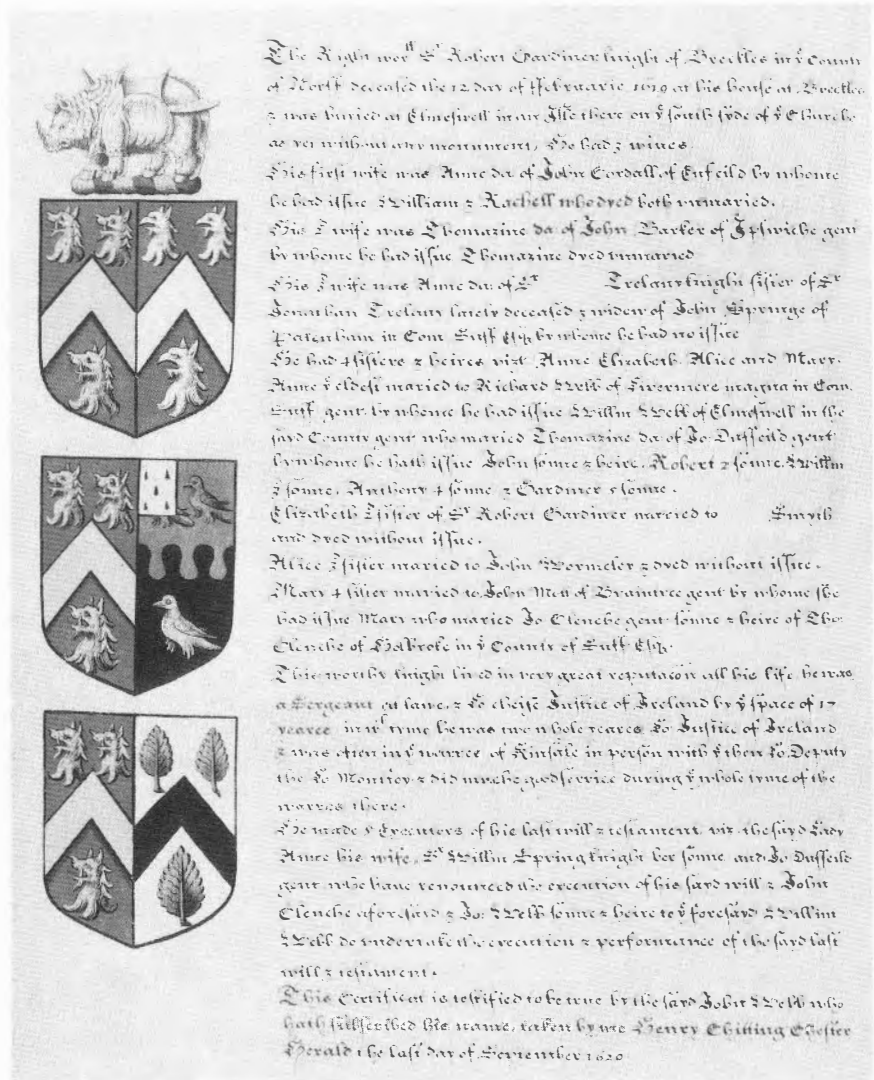 The Right wor^ll S^r Robert Gardiner knight of Breckles in y^e County
of Norff deceased the 12 day of ffebruarie 1619 at his house at Breckles
& was buried at Elmeswell in an Isle there on y^e south syde of y^e Churche
as yet without any monument, He had 3 wives.
His first wife was Anne da: of John Cordall of Enfeild by whome
he had issue William & Rachell who dyed both unmaried.
His 2 wife was Thomazine da: of John Barker of Ipswiche gent
by whome he had issue Thomazine dyed unmaried
His 3 wife was Anne da: of S^r Trelany knight sister of S^r
Jonathan Trelany lately deceased & widow of John Springe of
Pakenham in Com Suff Esq by whome he had no issue
He had 4 sisters & heires vizt Anne Elizabeth. Alice and Mary.
Anne y^e eldest maried to Richard Webb of Livermere magna in Com.
Suff gent. by whome he had issue Willm Webb of Elmeswell in the
sayd County gent who maried Thomazine da: of Jo Duffeild gent
by whome he hath issue John sonne & heire, Robert 2 sonne, Willm
3 sonne, Anthony 4 sonne & Gardiner 5 sonne.
Elizabeth 2 sister of S^r Robert Gardiner married to Smyth
and dyed without issue.
Alice 3 sister maried to John & dyed without issue.
Mary 4 sister maried to John Mott of Braintree gent by whome she
had issue Mary who maried Jo Clenche gent sonne & heire of Tho:
Clenche of Holbroke in y^e County of Suff Esq.
This worthy knight lived in very great reputacon all his life, he was
a Sergeant at lawe, & Lo cheife Justice of Ireland by y^e space of 17
yeares in w^ch tyme he was two whole yeares Lo Justice of Ireland
& was often in y^e warres of Kinsale in person with y^e then Lo: Deputy
the Lo Montioy & did muche good service during y^e whole tyme of the
warres there.
He made 5 Executors of his last will & testament viz. the sayd Lady
Anne his wife, S^r Willm Spring knight her sonne, and Jo Duffeild
gent who have renounced the execution of his sayd will & John
Clenche aforesayd & Jo: Webb sonne & heire to y^e foresayd Willim
Webb do undertake the execution & performance of the sayd last
will & testament.
This Certificat is testified to be true by the sayd John Webb who
hath subscribed his name, taken by me Henry Chitting Chester
Herald the last day of September 1620